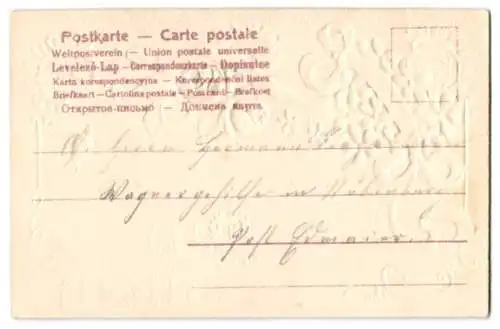 Postkarte — Carte postale
Weltpostverein — Union postale universelle
Levelező-Lap — Correspondenzkarte — Dopisnice
Karta korespondencyjna — Korespondenční lístek
Briefkaart — Cartolina postale — Post card — Brefkort
Открытое письмо — Дописна карта
Herrn Hermann
Wagnergehilfe in
Post